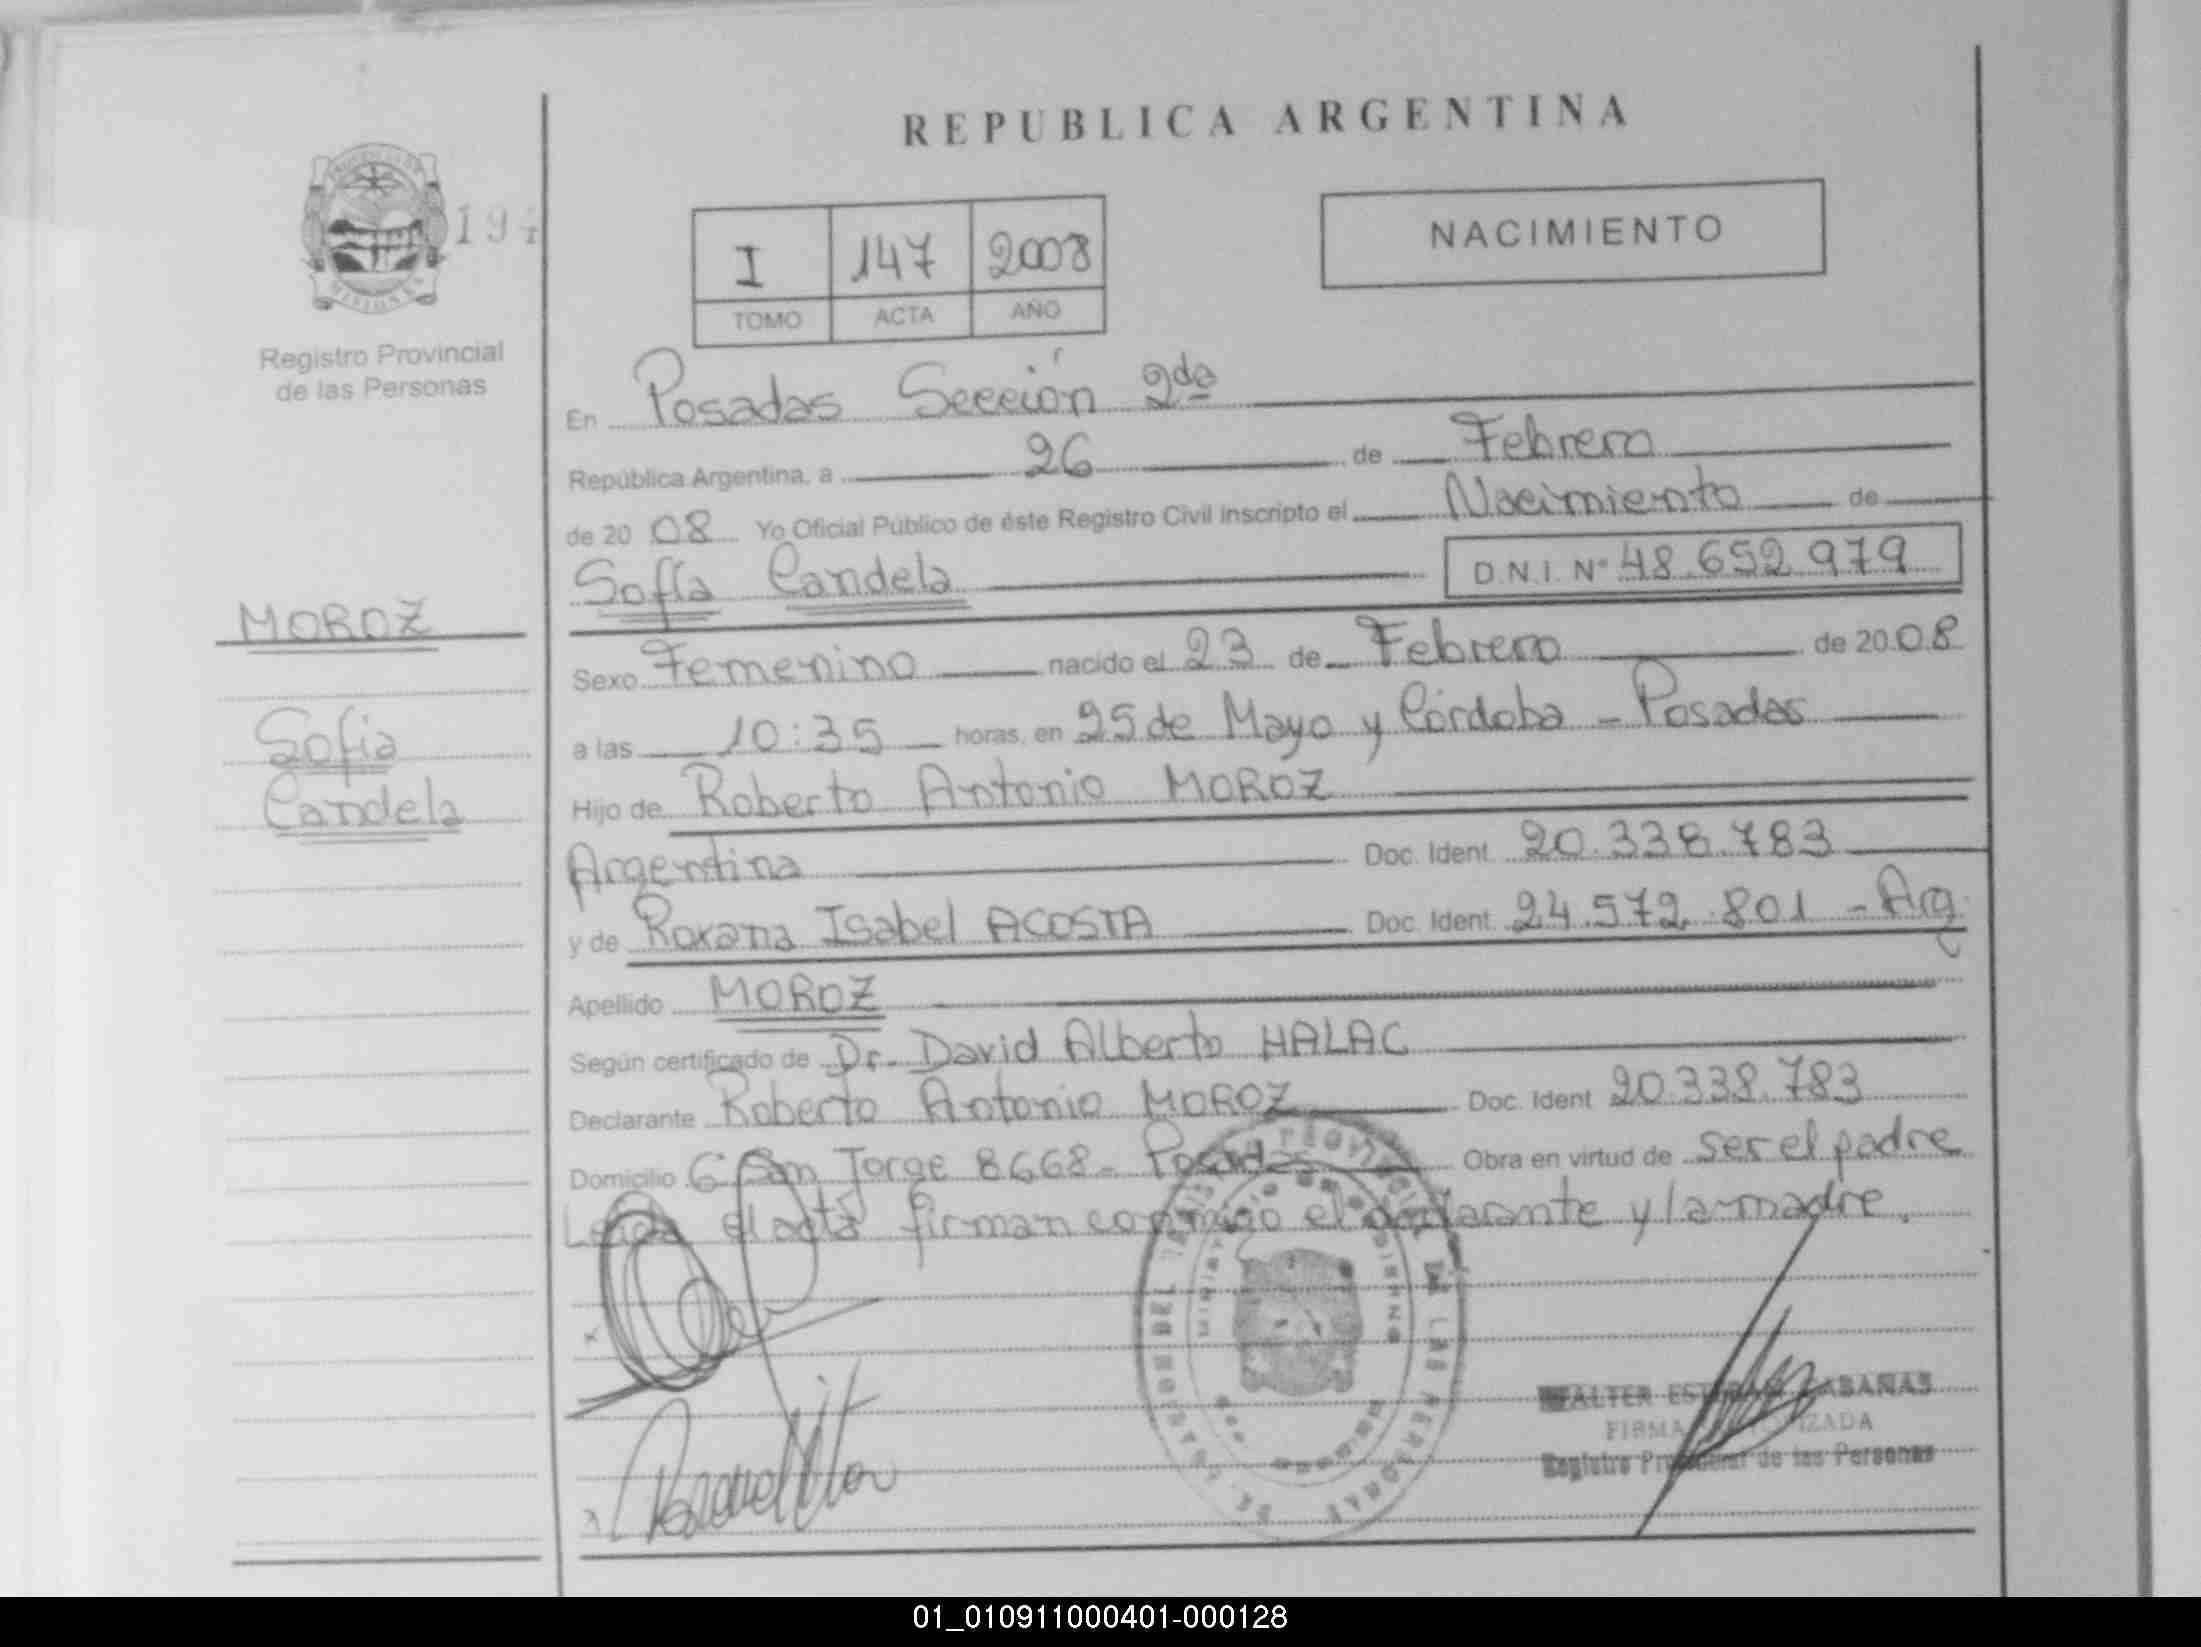 REPUBLICA ARGENTINA
PROVINCIA DE
MISIONES
194
Registro Provincial
de las Personas
I 147 2008
TOMO ACTA AÑO
NACIMIENTO
En Posadas Sección 2da
República Argentina, a 26 de Febrero
de 2008 Yo Oficial Público de éste Registro Civil inscripto el Nacimiento de
Sofía Candela D.N.I. Nº 48.652.979
MOROZ
Sofia
Candela
Sexo Femenino nacido el 23 de Febrero de 2008
a las 10:35 horas, en 25 de Mayo y Córdoba - Posadas
Hijo de Roberto Antonio MOROZ
Argentina Doc. Ident 20.338.783
y de Roxana Isabel ACOSTA Doc. Ident 24.572.801 - Arg
Apellido MOROZ
Según certificado de Dr. David Alberto HALAC
Declarante Roberto Antonio MOROZ Doc. Ident 20.338.783
Domicilio San Jorge 8668- Posadas Obra en virtud de ser el padre
Leida el acta firman conmigo el declarante y la madre.
FIRMA AUTORIZADA
Registro Provincial de las Personas
01_010911000401-000128